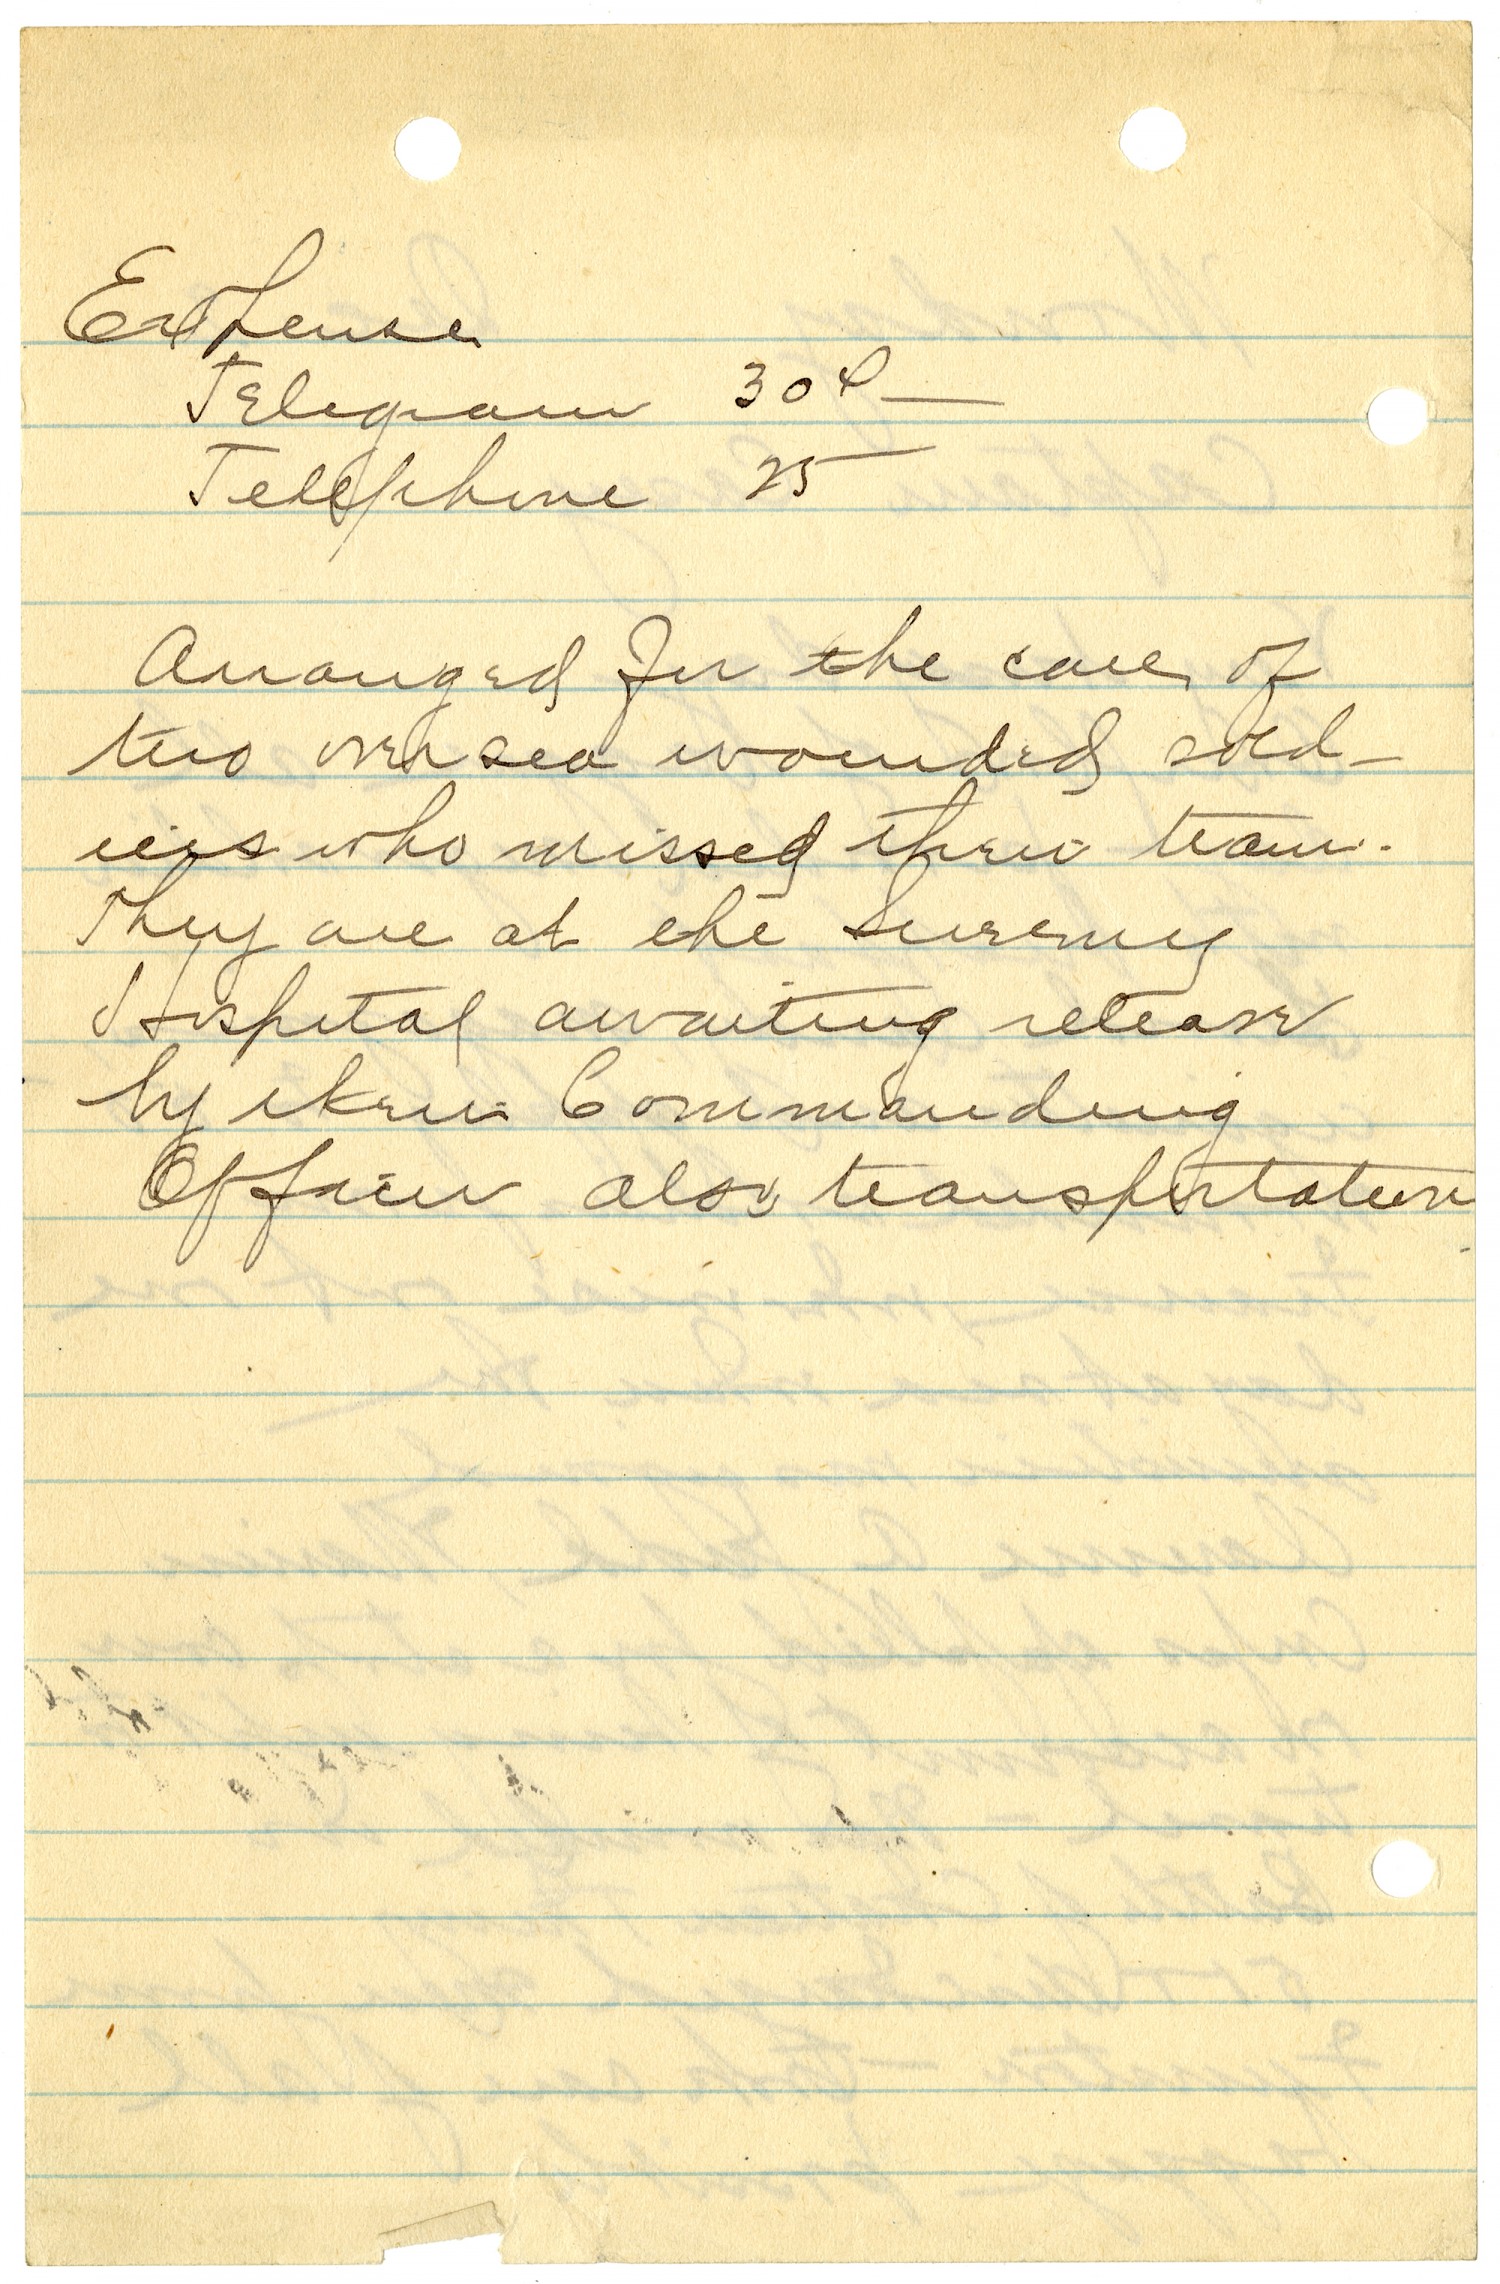 Expense
Telegram 30¢ —
Telephone 25
Arranged for the care of
two oversea wounded sold-
iers who missed their train.
They are at the
Hospital awaiting release
by their Commanding
Officer also transportation